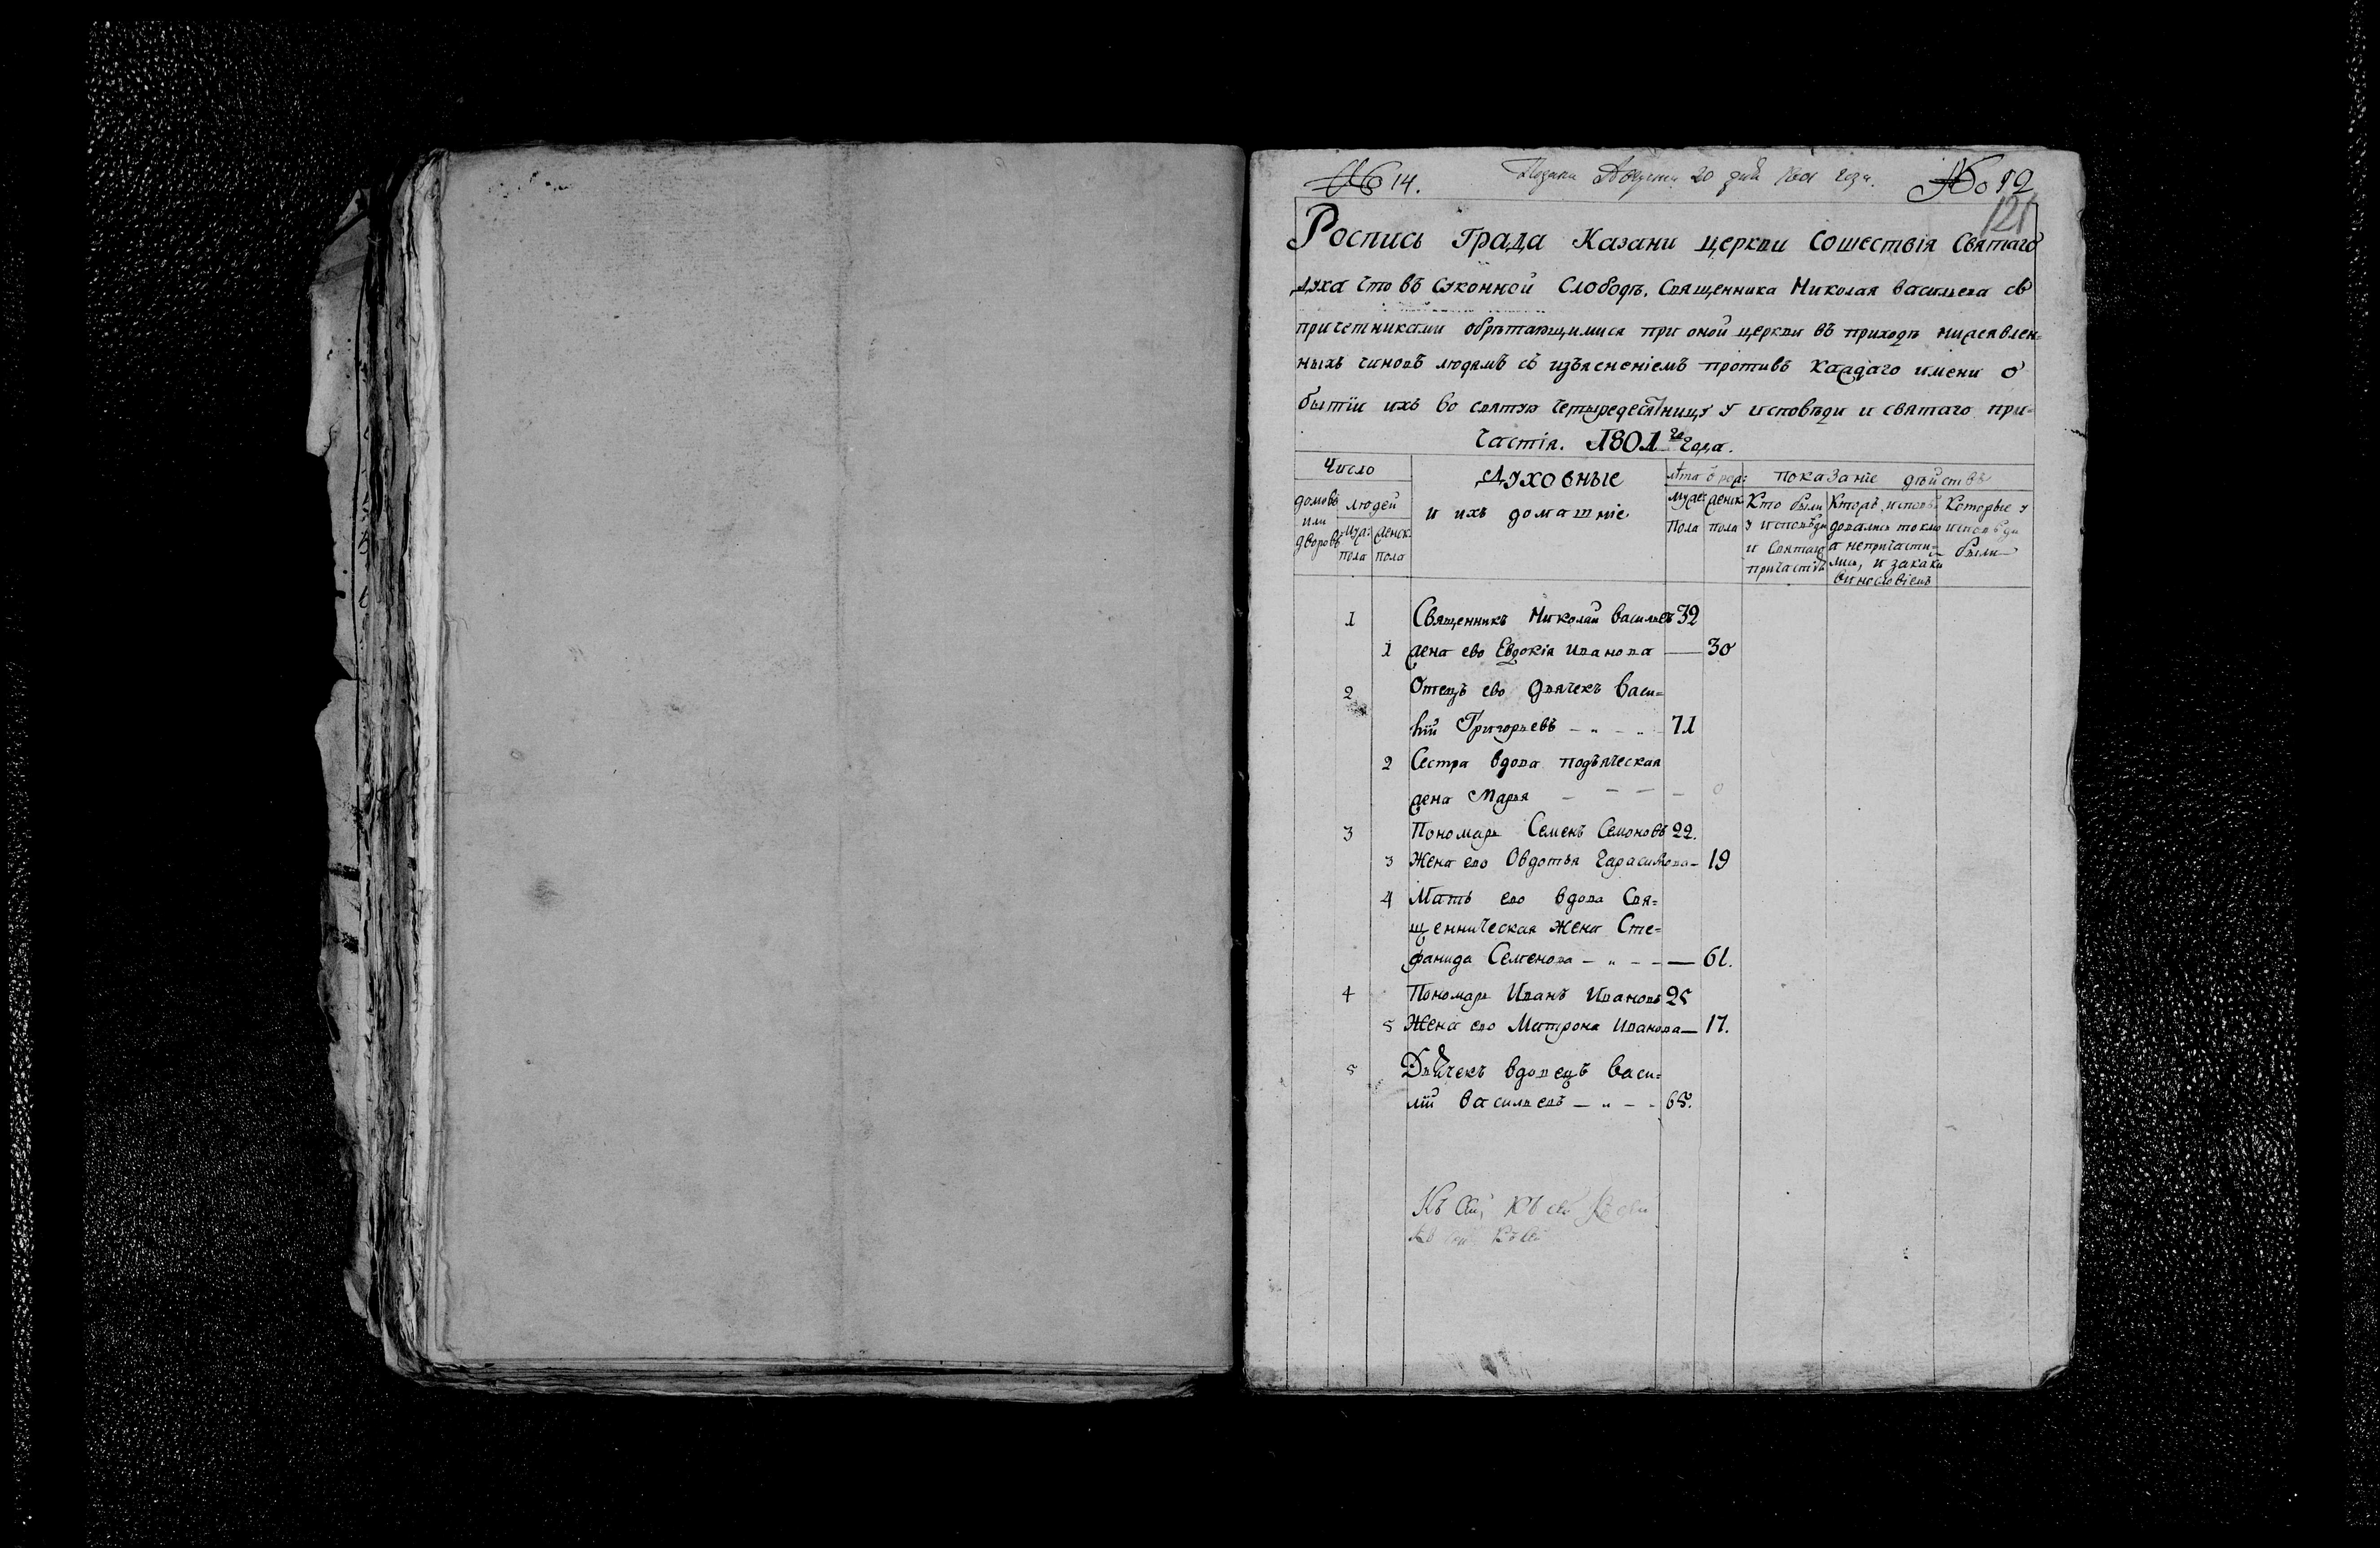 № 14. Поданы Августа 20 дня 1801 года. № 12
121
Роспись Града Казани церкви Сошествія Святаго
духа что въ суконной Слободѣ. Священника Николая Васильева съ
причетниками обрѣтающимися при оной церкви въ приходѣ нижеявлен=
ныхъ чиновъ людямъ съ изъясненіемъ противъ каждаго имени о
бытіи ихъ во святую четыредесятницу у исповѣди и святаго при=
частія. 1801го года.
Число Духовные лѣта ѿ рож: показаніе дѣйствъ
домовъ или дворовъ людей и ихъ домашніе Муже: женск: Кто были Которѣ исповѣ Которые у
Муж: женск: Пола пола у исповѣди довались токмо исповѣди
пола пола и Святаго а непричасти= были
причастія лись, и закаки
винословіемъ
1 Священникъ Николай Васильевъ 32
1 жена ево Евдокія Иванова — 30
2 Отецъ ево Дьячекъ Васи=
лій Григорьевъ — „ — „ 71
2 Сестра вдова подьяческая
жена Марья — — — — 0
3 Пономарь Семенъ Семоновъ 22.
3 Жена ево Овдотья Гарасимова — 19
4 Мать ево вдова Свя=
щенническая жена Сте=
фанида Семенова — „ — — — 61.
4 Пономарь Иванъ Ивановъ 25
5 Жена ево Матрона Иванова — 17.
5 Дьячекъ вдовецъ Васи=
лій Васильевъ — „ — — 65.